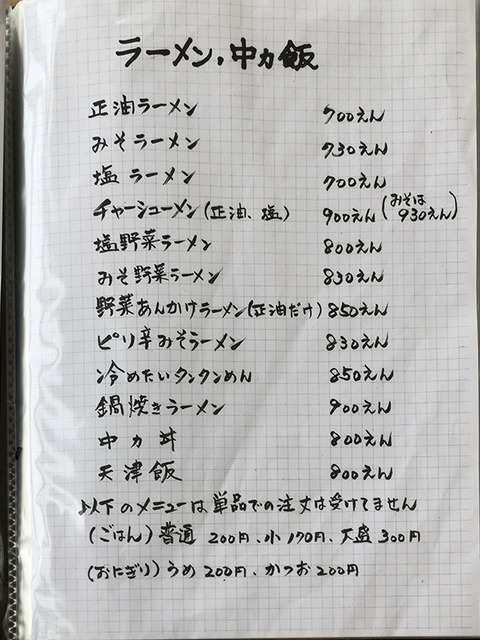 ラーメン，中カ飯
正油ラーメン 700えん
みそラーメン 730えん
塩ラーメン 700えん
チャーシューメン(正油、塩) 900えん(みそは930えん)
塩野菜ラーメン 800えん
みそ野菜ラーメン 830えん
野菜あんかけラーメン(正油だけ) 850えん
ピリ辛みそラーメン 830えん
冷めたいタンタンめん 850えん
鍋焼きラーメン 900えん
中カ丼 800えん
天津飯 800えん
♪以下のメニューは単品での注文は受けてません
(ごはん) 普通 200円、小 170円、大盛 300円
(おにぎり) うめ 200円、かつお 200円